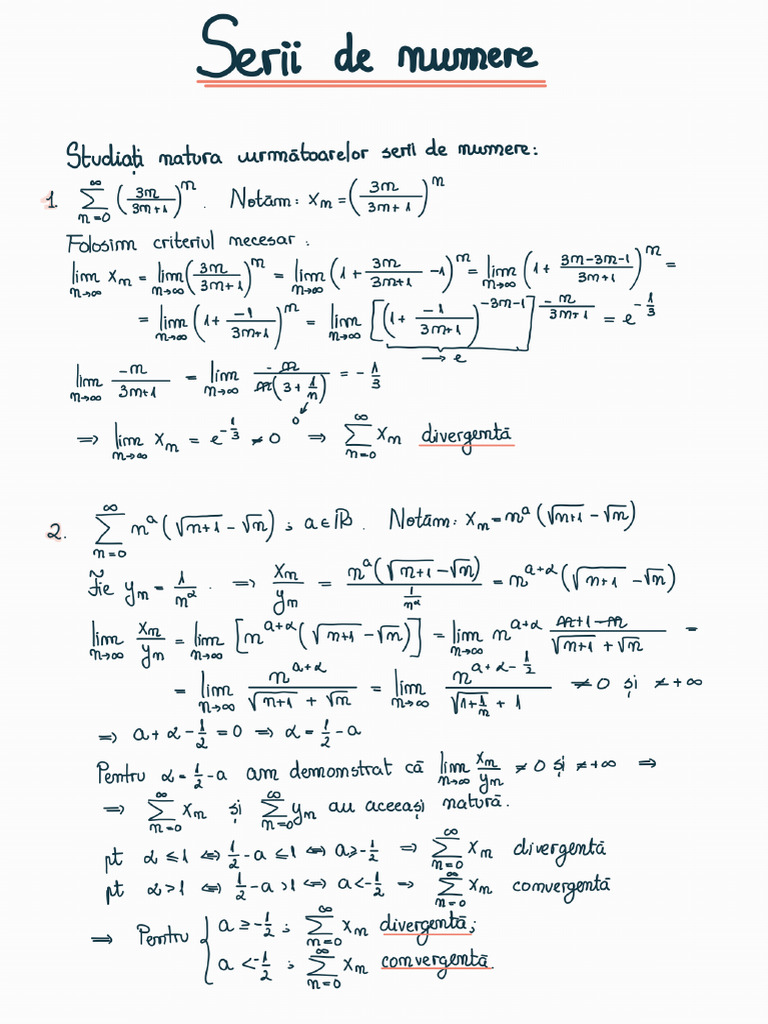 Serii de numere
Studiați natura următoarelor serii de numere:
1. ∑_{n=0}^{∞} (3n/(3n+1))^n. Notăm: x_n = (3n/(3n+1))^n
Folosim criteriul necesar:
lim_{n→∞} x_n = lim_{n→∞} (3n/(3n+1))^n = lim_{n→∞} (1 + 3n/(3n+1) - 1)^n = lim_{n→∞} (1 + (3n-3n-1)/(3n+1))^n =
= lim_{n→∞} (1 + -1/(3n+1))^n = lim_{n→∞} [(1 + -1/(3n+1))^{-3n-1}]^{-n/(3n+1)} = e^{-1/3}
→ e
lim_{n→∞} -n/(3n+1) = lim_{n→∞} -n/(n(3 + 1/n)) = -1/3
0
⇒ lim_{n→∞} x_n = e^{-1/3} ≠ 0 ⇒ ∑_{n=0}^{∞} x_n divergentă
2. ∑_{n=0}^{∞} n^a (√(n+1) - √n); a ∈ ℝ. Notăm: x_n = n^a (√(n+1) - √n)
Fie y_n = 1/n^α. ⇒ x_n/y_n = n^a(√(n+1) - √n)/(1/n^α) = n^{a+α} (√(n+1) - √n)
lim_{n→∞} x_n/y_n = lim_{n→∞} [n^{a+α} (√(n+1) - √n)] = lim_{n→∞} n^{a+α} (n+1-n)/(√(n+1) + √n) =
= lim_{n→∞} n^{a+α}/(√(n+1) + √n) = lim_{n→∞} n^{a+α-1/2}/(√(1+1/n) + 1) ≠ 0 și ≠ +∞
⇒ a + α - 1/2 = 0 ⇒ α = 1/2 - a
Pentru α = 1/2 - a am demonstrat că lim_{n→∞} x_n/y_n ≠ 0 și ≠ +∞ ⇒
⇒ ∑_{n=0}^{∞} x_n și ∑_{n=0}^{∞} y_n au aceeași natură.
pt α ≤ 1 ⇔ 1/2 - a ≤ 1 ⇔ a ≥ -1/2 ⇒ ∑_{n=0}^{∞} x_n divergentă
pt α > 1 ⇔ 1/2 - a > 1 ⇔ a < -1/2 ⇒ ∑_{n=0}^{∞} x_n convergentă
⇒ Pentru { a ≥ -1/2; ∑_{n=0}^{∞} x_n divergentă;
a < -1/2; ∑_{n=0}^{∞} x_n convergentă.